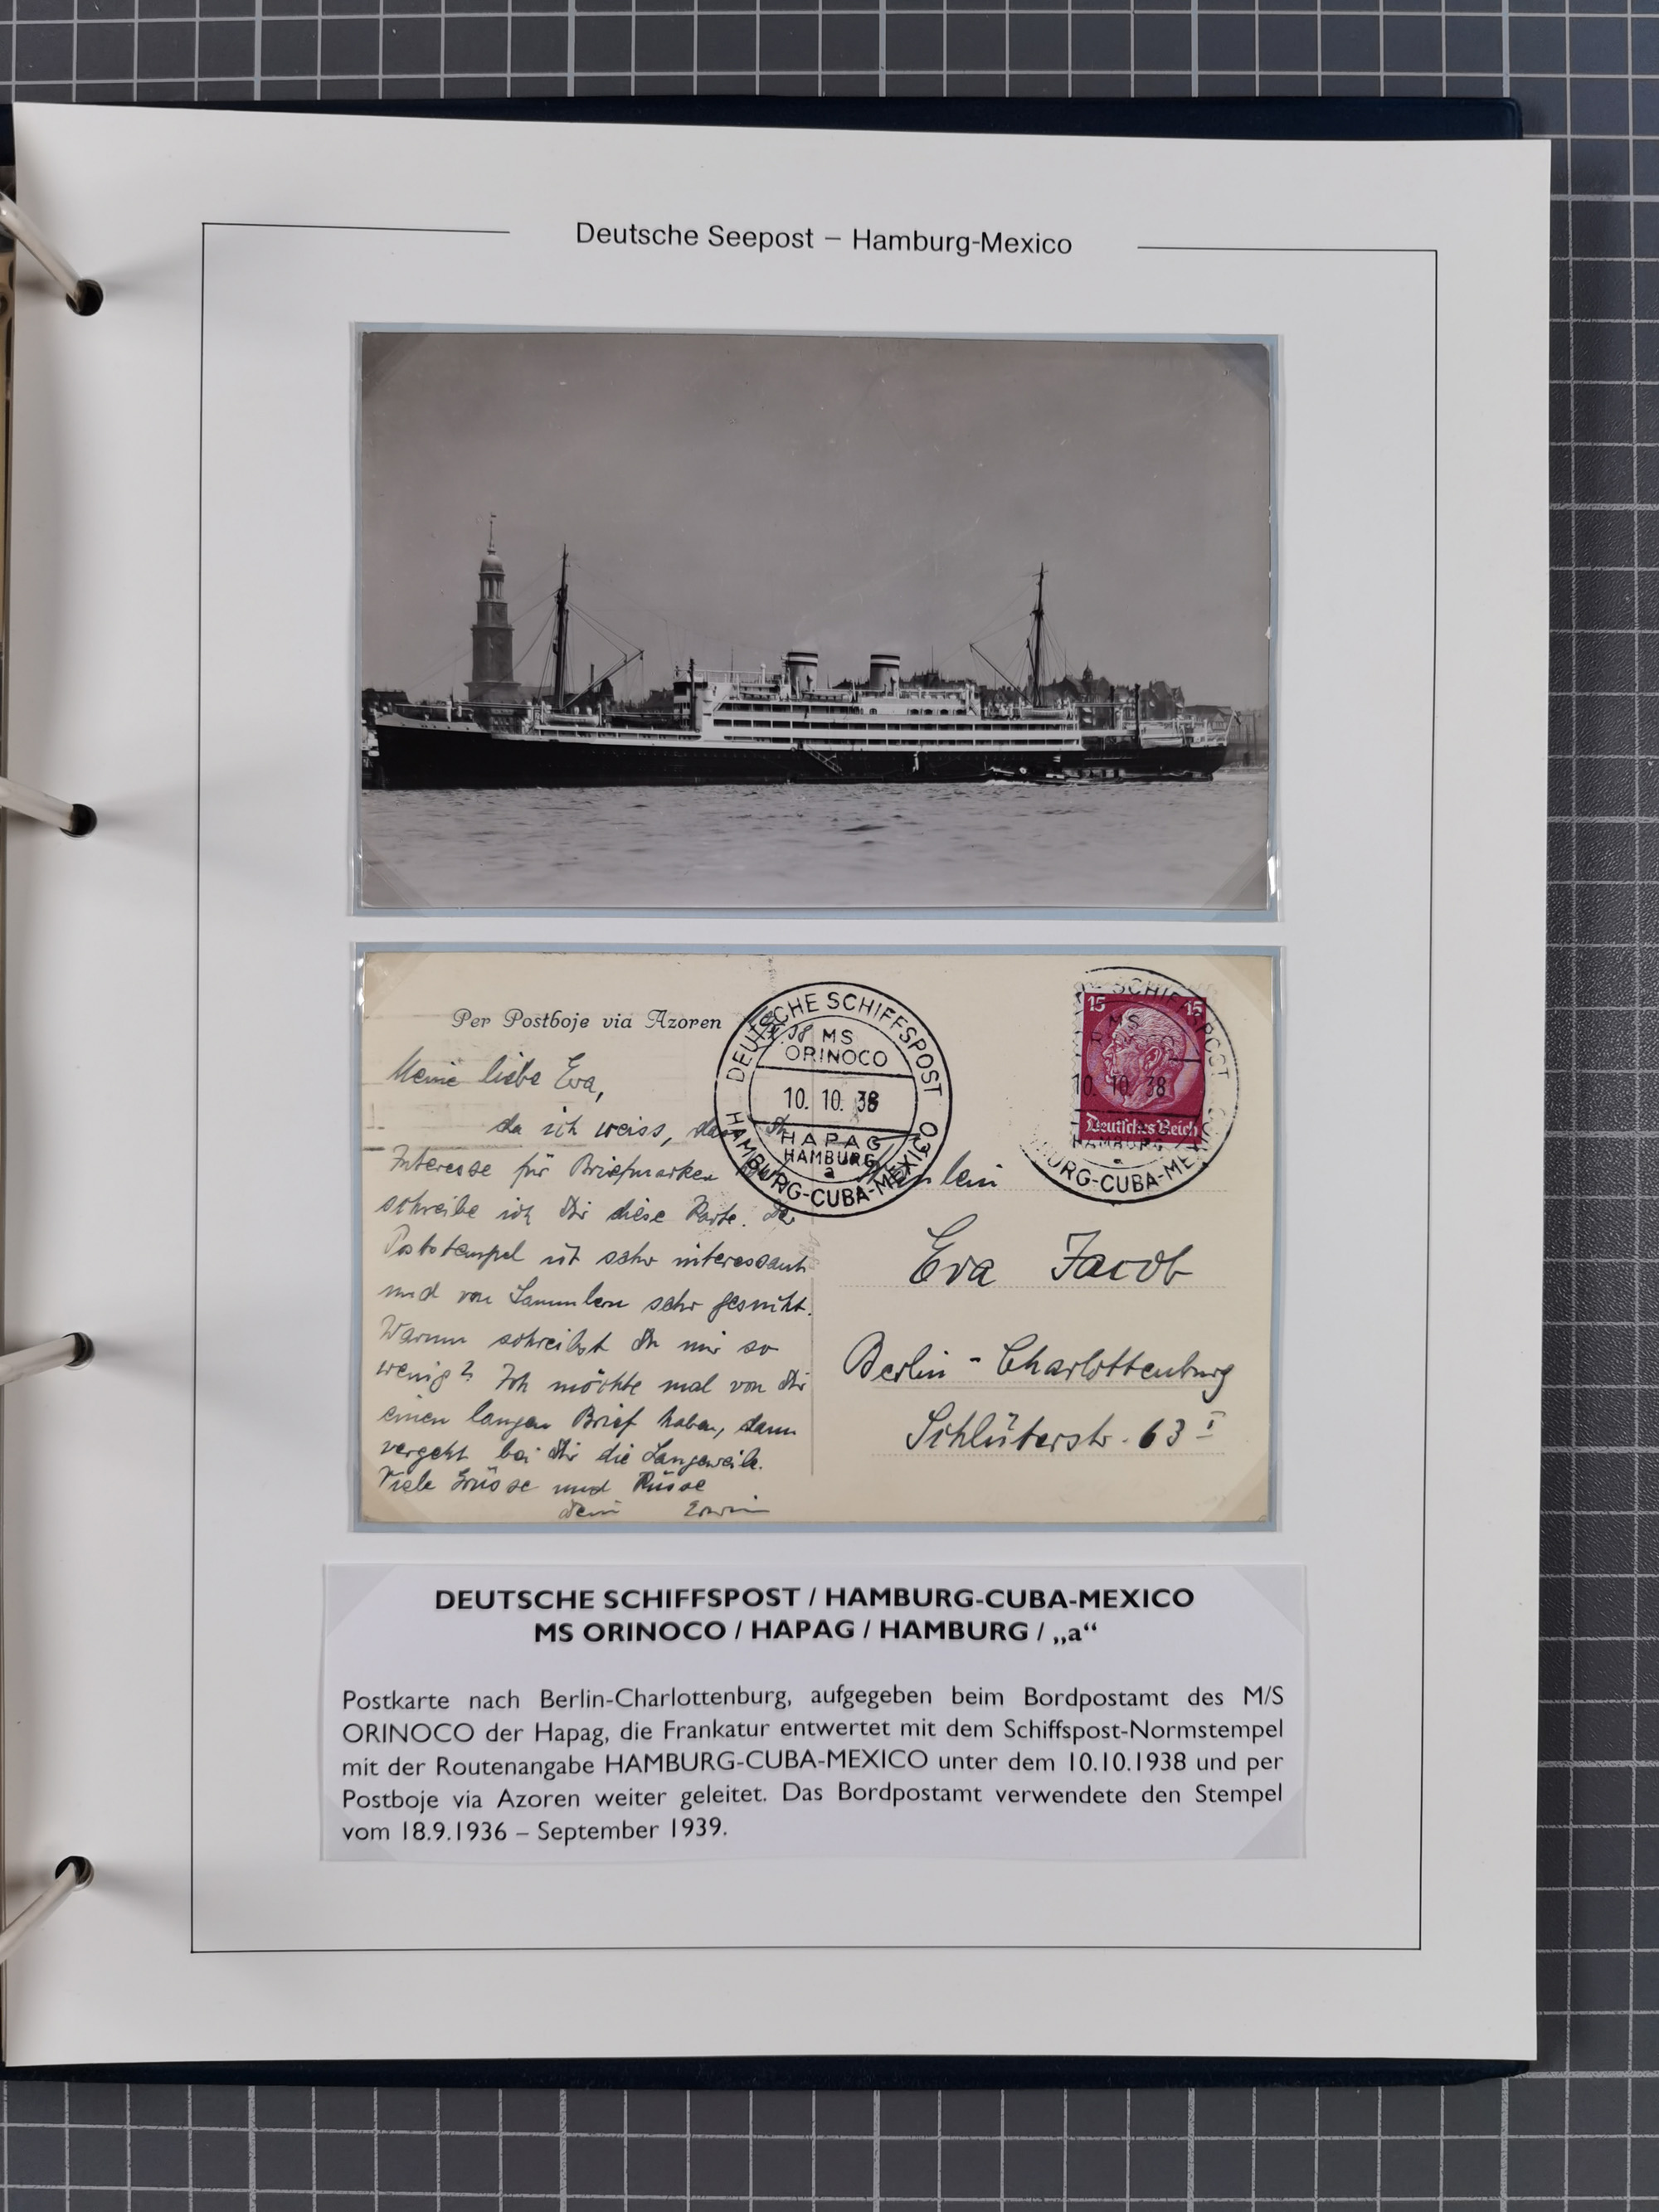 Deutsche Seepost – Hamburg-Mexico
Per Postboje via Azoren
DEUTSCHE SCHIFFSPOST
MS
ORINOCO
10. 10. 38
HAPAG
HAMBURG
a
HAMBURG-CUBA-MEXICO
15 15
MS
10. 10. 38
Deutsches Reich
HAMBURG
a
BURG-CUBA-ME
Meine liebe Eva,
da ich weiss, dass Du
Interesse für Briefmarken
schreibe ich Dir diese Karte. Der
Poststempel ist sehr interessant
und von Sammlern sehr gesucht.
Warum schreibst Du mir so
wenig? Ich möchte mal von Dir
einen langen Brief haben, dann
vergeht bei Dir die Langeweile.
Viele Grüsse und Küsse
Dein Erwin
Fräulein
Eva Jacob
Berlin - Charlottenburg
Schlüterstr. 63 I
DEUTSCHE SCHIFFSPOST / HAMBURG-CUBA-MEXICO
MS ORINOCO / HAPAG / HAMBURG / „a“
Postkarte nach Berlin-Charlottenburg, aufgegeben beim Bordpostamt des M/S
ORINOCO der Hapag, die Frankatur entwertet mit dem Schiffspost-Normstempel
mit der Routenangabe HAMBURG-CUBA-MEXICO unter dem 10.10.1938 und per
Postboje via Azoren weiter geleitet. Das Bordpostamt verwendete den Stempel
vom 18.9.1936 – September 1939.